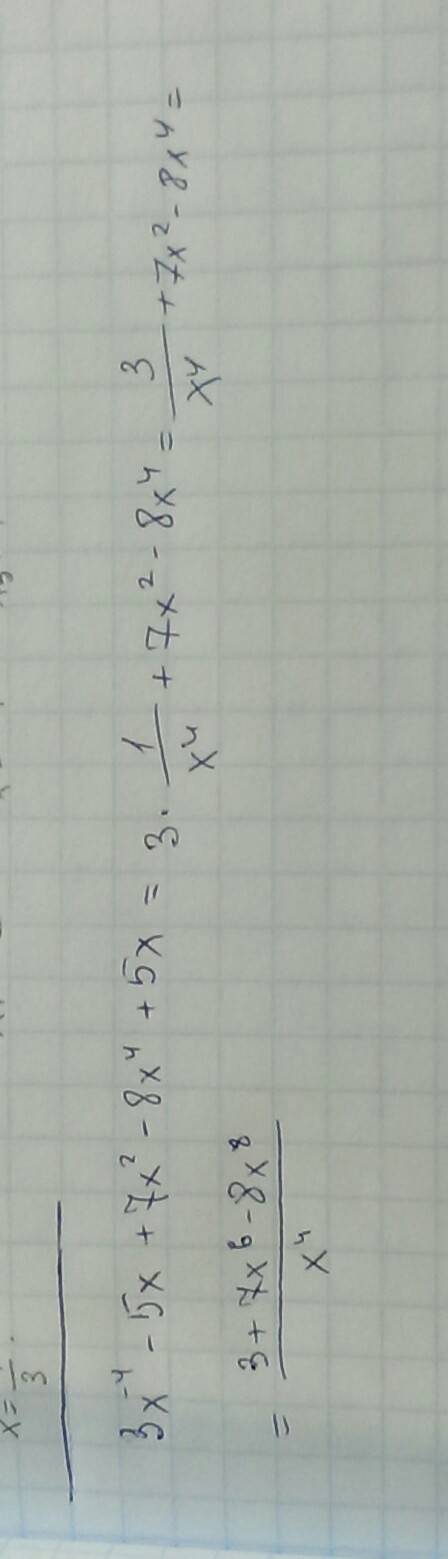 x = 1/3.
3x⁻⁴ - 5x + 7x² - 8x⁴ + 5x = 3 · 1/x⁴ + 7x² - 8x⁴ = 3/x⁴ + 7x² - 8x⁴ =
= (3 + 7x⁶ - 8x⁸)/x⁴